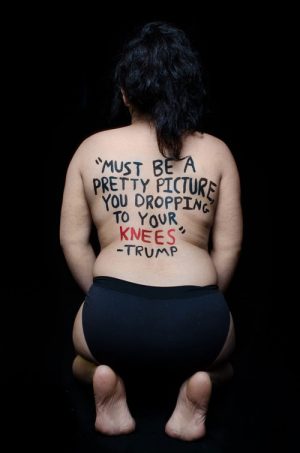 "MUST BE A
PRETTY PICTURE,
YOU DROPPING
TO YOUR
KNEES"
-TRUMP